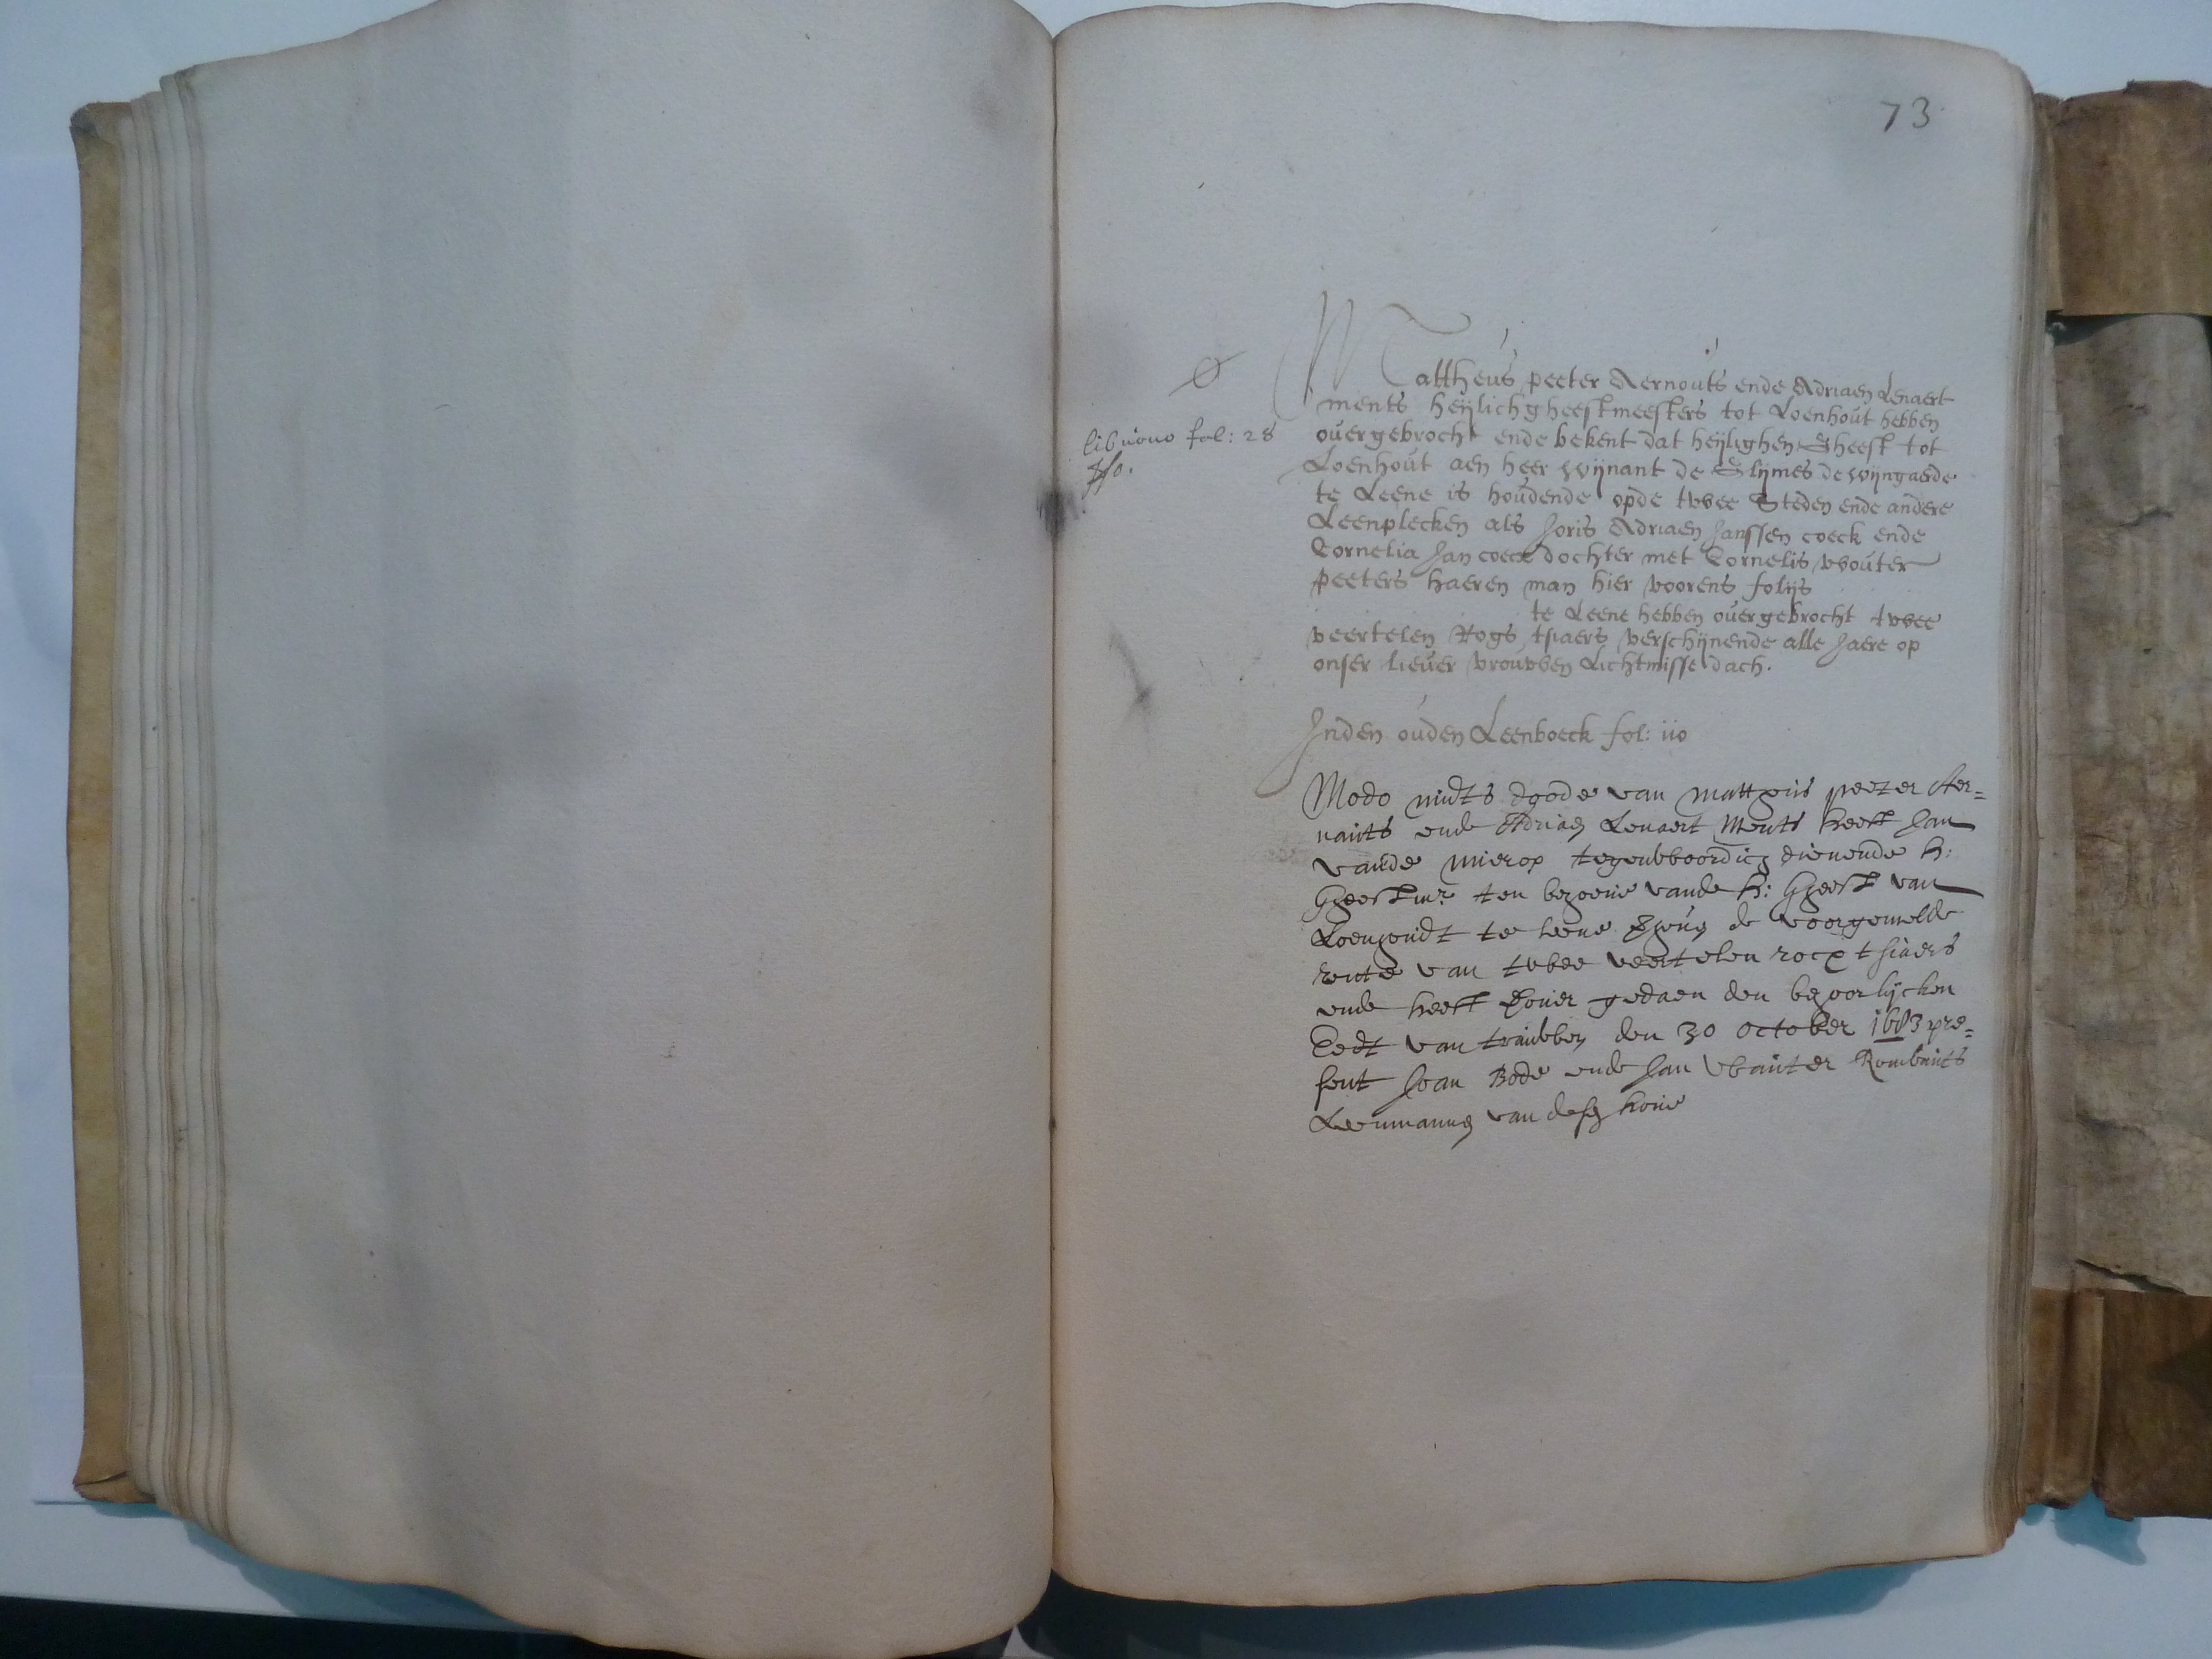 73
Mattheus peeter Aernouts ende Adriaen Lenaert
ments heijlichgheestmeesters tot Loenhout hebben
ouergebrocht ende bekent dat heijlighen Gheest tot
Loenhout aen heer wijnant de Glijmes de wijngaerde
te Leene is houdende opde twee Steden ende andere
Leenplecken als Joris Adriaen Janssen coeck ende
Cornelia Jan coecx dochter met Cornelis wouter
peeters haeren man hier voorens folijs
te Leene hebben ouergebrocht twee
veertelen Rogs tsiaers verschijnende alle Jaere op
onser lieuer vrouwen Lichtmisse dach.
Ø
lib nouo fol: 28
Inden ouden Leenboeck fol: iio
Modo midts doode van mattheus peeter Aer=
nauts ende Adriaen Lenaert Ments heeft Jan
vande mierop tegenwoordich dienende H:
Gheestmr ten behoeue vande H: Gheest van
Loenhoudt te leene de voorgemelde
rente van twee veertelen rocx tsiaers
ende heeft gedaen den behoorlijcken
Eedt van trauwen den 30 october 1683 pre=
sent Joan Bode ende Jan Wauter Rombauts
Leenmannen van desen houe